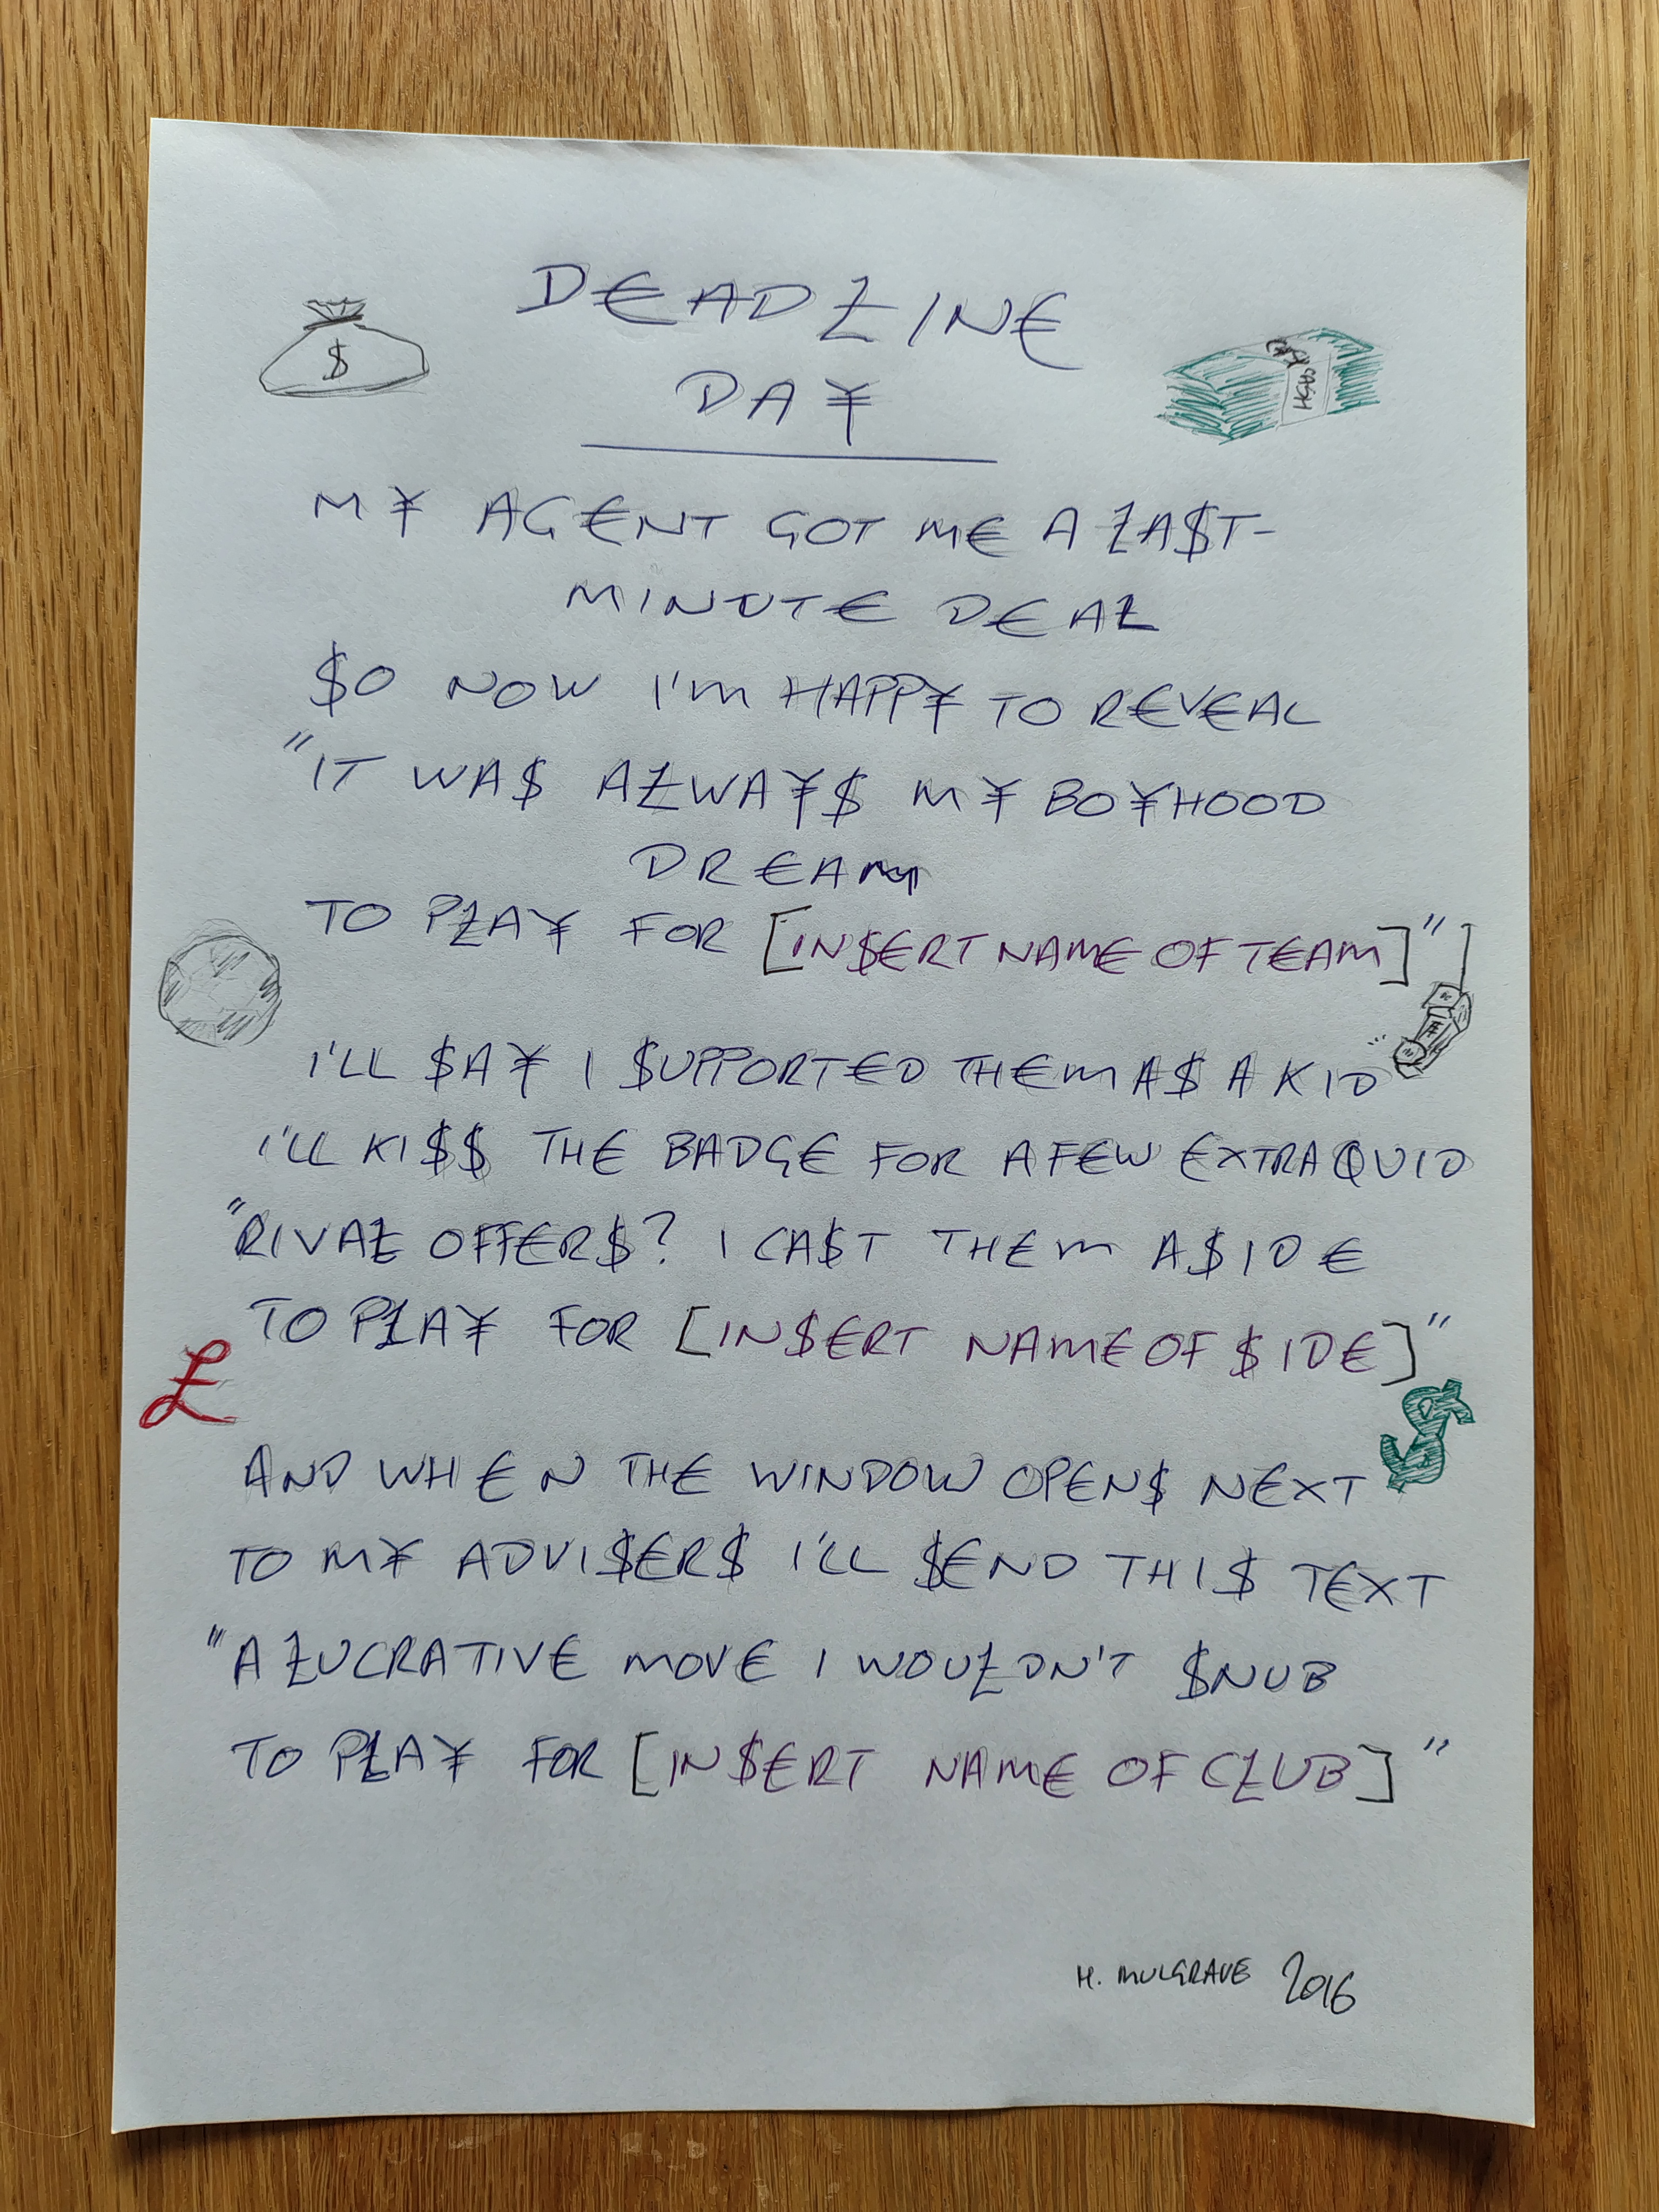 D€AD£IN€
DA¥
$
CASH
M¥ AG€NT GOT M€ A £A$T-
MINUT€ D€A£
$O NOW I'M HAPP¥ TO R€V€AL
"IT WA$ A£WA¥$ M¥ BO¥HOOD
DR€AM
TO P£A¥ FOR [IN$€RT NAM€ OF T€AM]"
I'LL $A¥ I $UPPORT€D TH€M A$ A KID
I'LL KI$$ TH€ BADG€ FOR A F€W €XTRA QUID
"RIVA£ OFF€R$? I CA$T TH€M A$ID€
TO P£A¥ FOR [IN$€RT NAM€ OF $ID€]"
£
$
AND WH€N TH€ WINDOW OP€N$ N€XT
TO M¥ ADVI$€R$ I'LL $€ND THI$ T€XT
"A £UCRATIV€ MOV€ I WOU£DN'T $NUB
TO P£A¥ FOR [IN$€RT NAM€ OF C£UB]"
H. MULGRAVE 2016